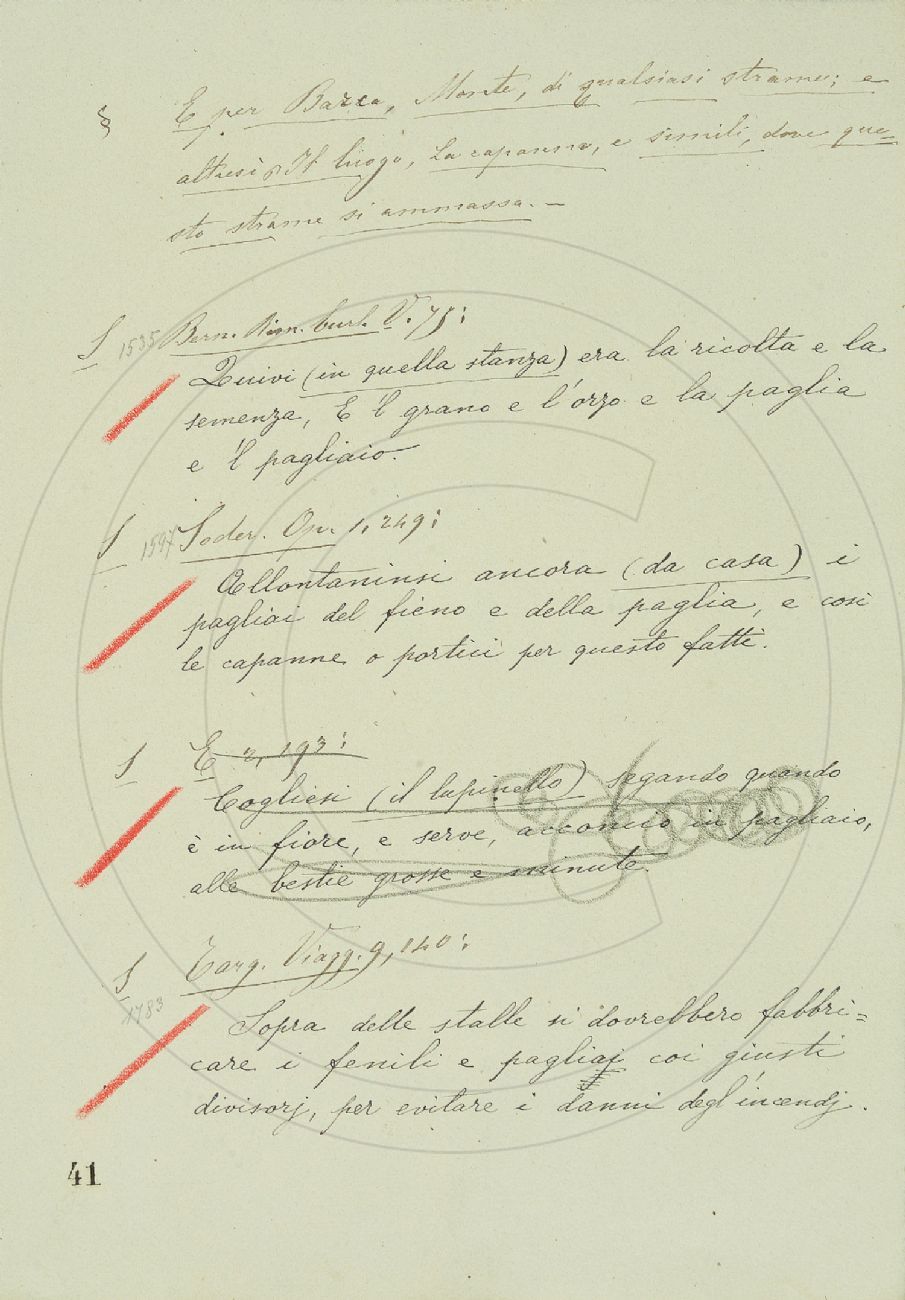 § E per Barca, Monte, di qualsiasi strame; e
altresì Il luogo, La capanna, e simili, dove que=
sto strame si ammassa. –
S 1535 Bern. Rim. burl. V. 75:
Quivi (in quella stanza) era la ricolta e la
semenza, E 'l grano e l'orzo e la paglia
e 'l pagliaio.
S 1597 Soder. Op. 1, 249:
Allontaninsi ancora (da casa) i
pagliai del fieno e della paglia, e così
le capanne o portici per questo fatti.
S E 2, 193:
Cogliesi (il lupinello) segando quando
è in fiore, e serve, acconcio in pagliaio,
alle bestie grosse e minute.
S Targ. Viagg. 9, 140:
1783
Sopra delle stalle si dovrebbero fabbri=
care i fenili e pagliai coi giusti
divisorj, per evitare i danni degl'incendj.
41